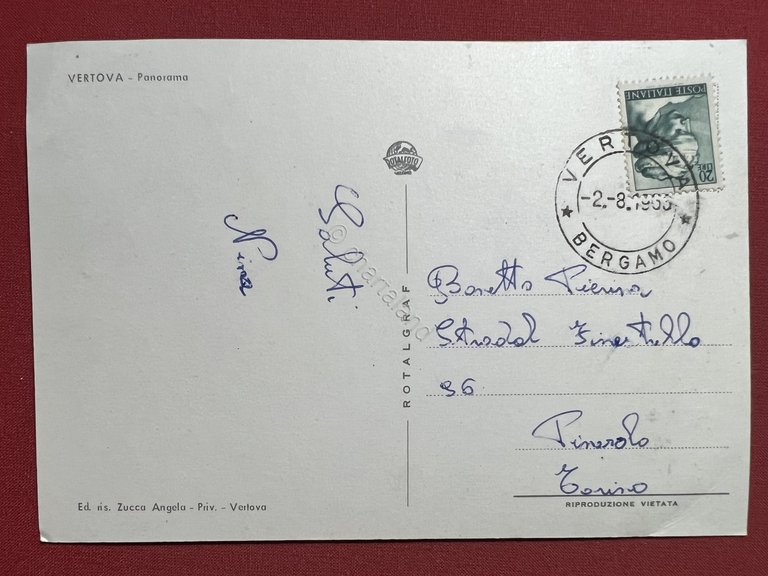 VERTOVA - Panorama
POSTE ITALIANE
20
LIRE
VERTOVA
-2.-8.196
BERGAMO
ROTALFOTO
MILANO
Saluti
Nina
© maraland
ROTALGRAF
Bonetto Pierina
Stradal
96
Pinerolo
Torino
RIPRODUZIONE VIETATA
Ed. ris. Zucca Angela - Priv. - Vertova